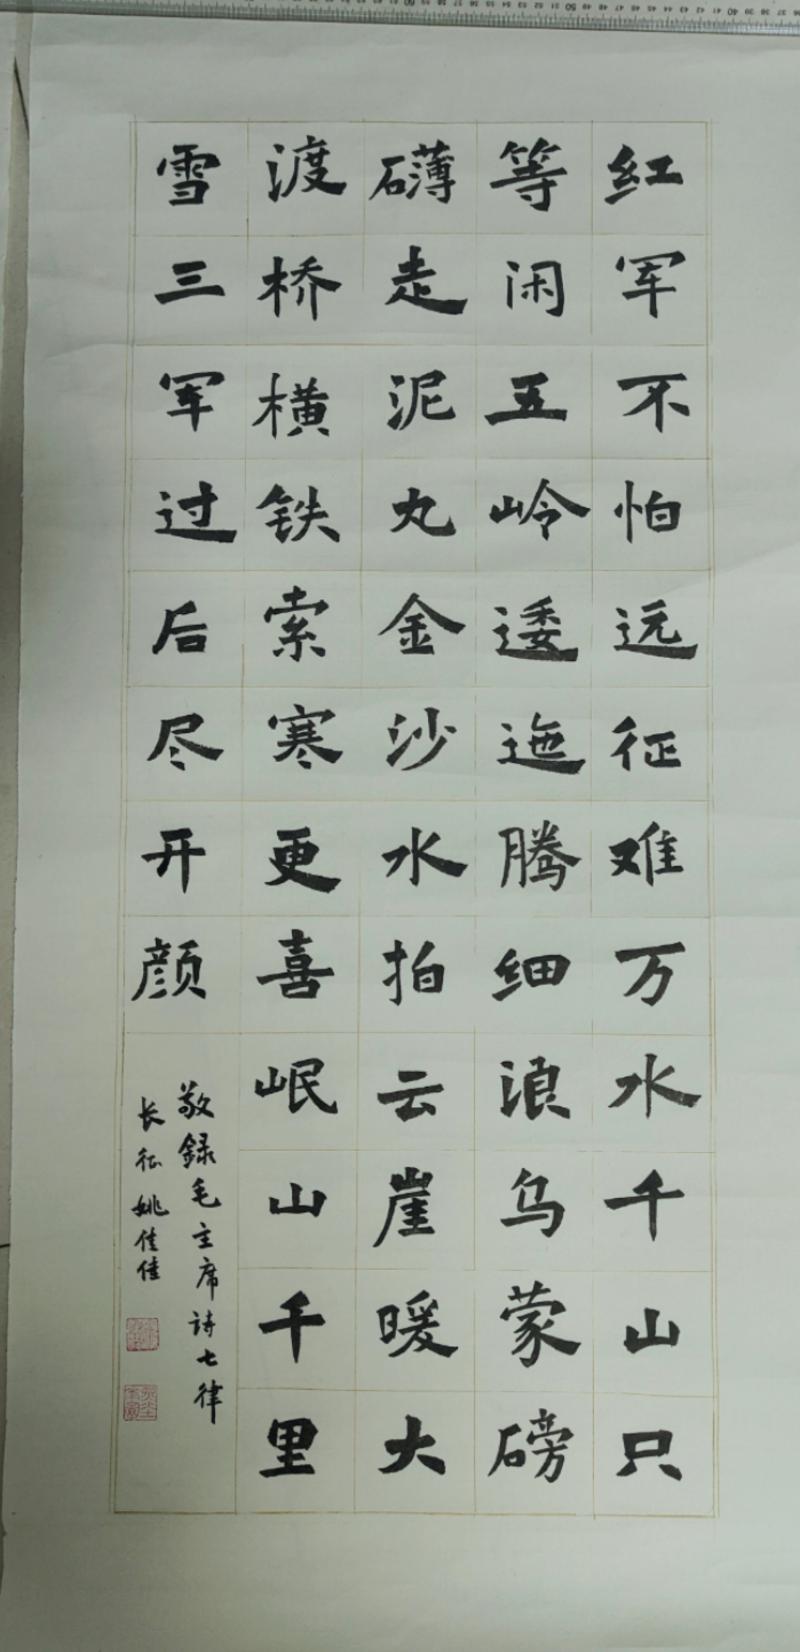 红军不怕远征难万水千山只
等闲五岭逶迤腾细浪乌蒙磅
礴走泥丸金沙水拍云崖暖大
渡桥横铁索寒更喜岷山千里
雪三军过后尽开颜
敬録毛主席诗七律
长征 姚佳佳